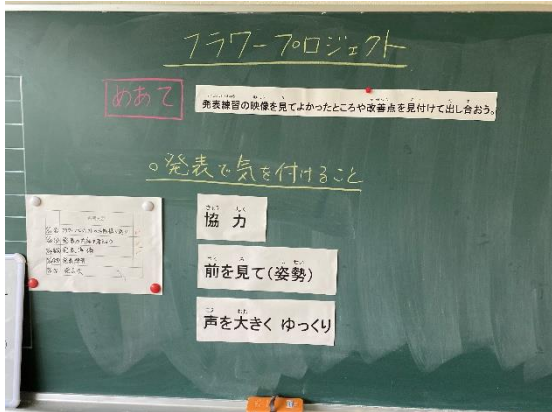 フラワープロジェクト
めあて
発表練習の映像を見てよかったところや改善点を見付けて出し合おう。
○発表で気を付けること
協力
前を見て(姿勢)
声を大きく ゆっくり